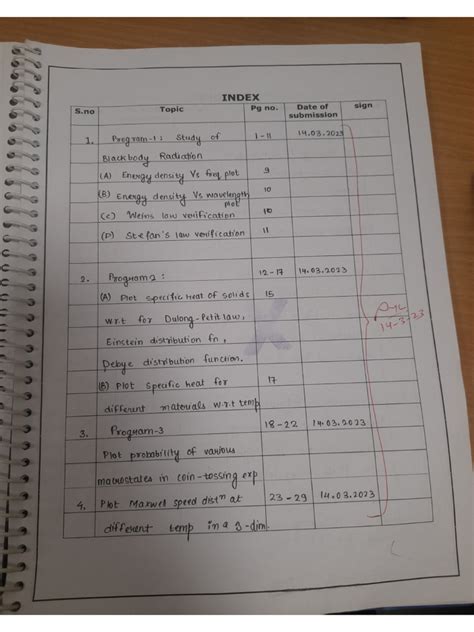 INDEX
S.no Topic Pg no. Date of submission sign
1. Program-1: Study of 1-11 14.03.2023
Blackbody Radiation
(A) Energy density Vs freq plot 9
(B) Energy density Vs wavelength plot 10
(C) Weins law verification 10
(D) Stefan's law verification 11
2. Program 2: 12-17 14.03.2023
(A) Plot specific Heat of solids 15
w.r.t for Dulong-Petit law,
Einstein distribution fn,
Debye distribution function.
(B) Plot Specific heat for 17
different materials w.r.t temp
3. Program-3 18-22 14.03.2023
Plot probability of various
macrostates in coin-tossing exp
4. Plot Maxwel speed distn at 23-29 14.03.2023
different temp in a 3-dim.
14-3-23